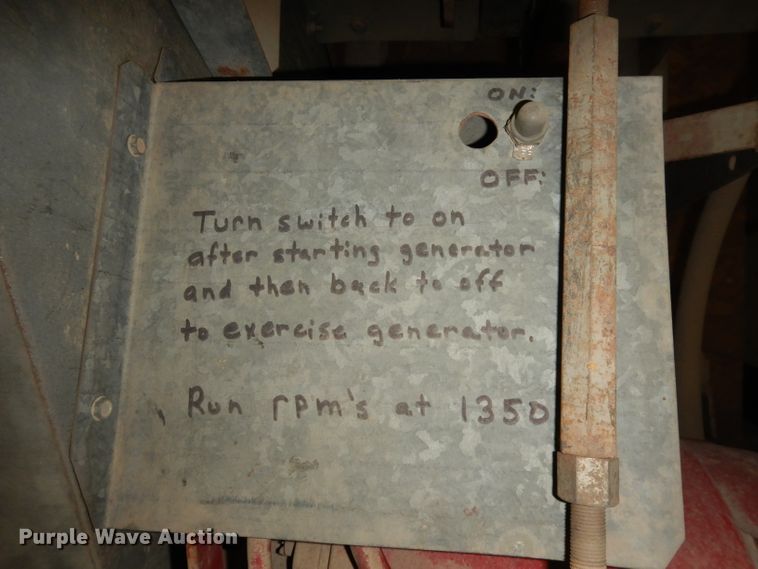 ON:
OFF:
Turn switch to on
after starting generator
and then back to off
to exercise generator.
Run rpm's at 1350
Purple Wave Auction